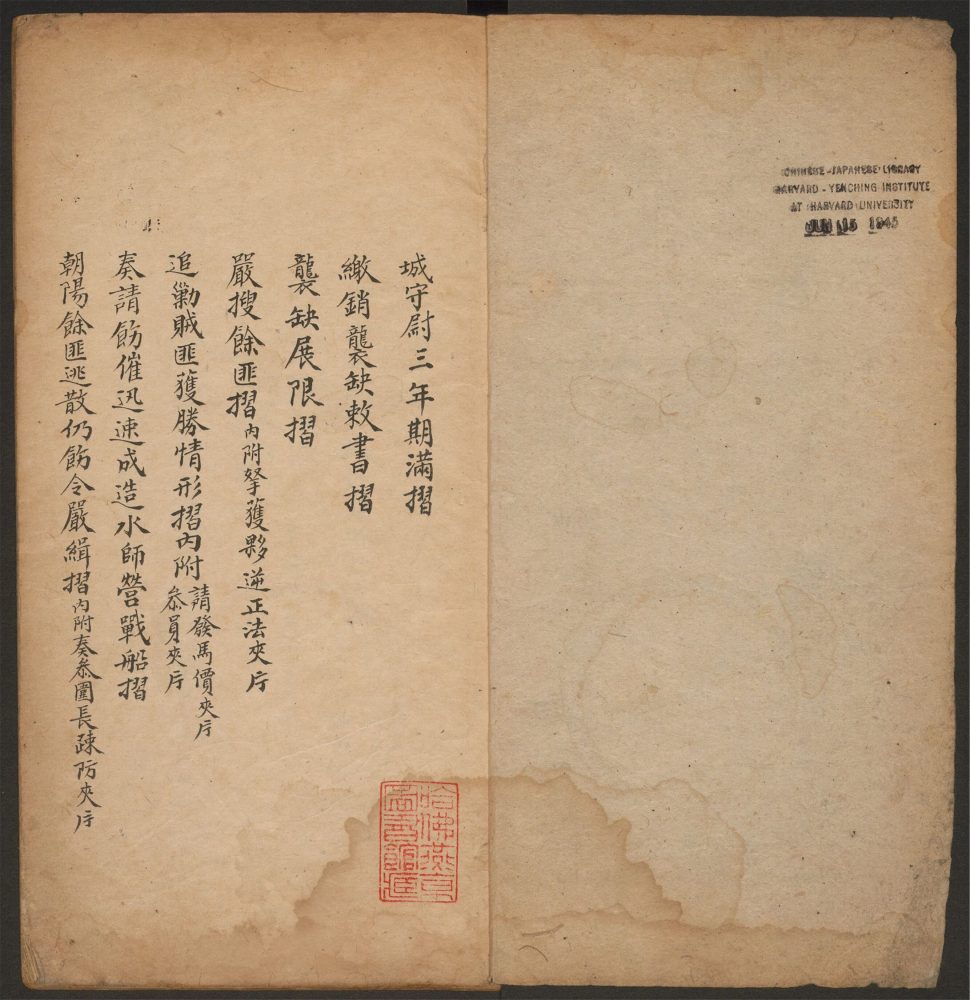 CHINESE-JAPANESE LIBRARY
HARVARD-YENCHING INSTITUTE
AT HARVARD UNIVERSITY
JUN 15 1945
城守尉三年期滿摺
繳銷襲缺敕書摺
襲缺展限摺
嚴搜餘匪摺內附拏獲夥逆正法夾片
追勦賊匪獲勝情形摺內附請發馬價夾片
叅員夾片
奏請飭催迅速成造水師營戰船摺
朝陽餘匪逃散仍飭令嚴緝摺內附奏叅圍長疎防夾片
哈佛燕京
圖書館藏